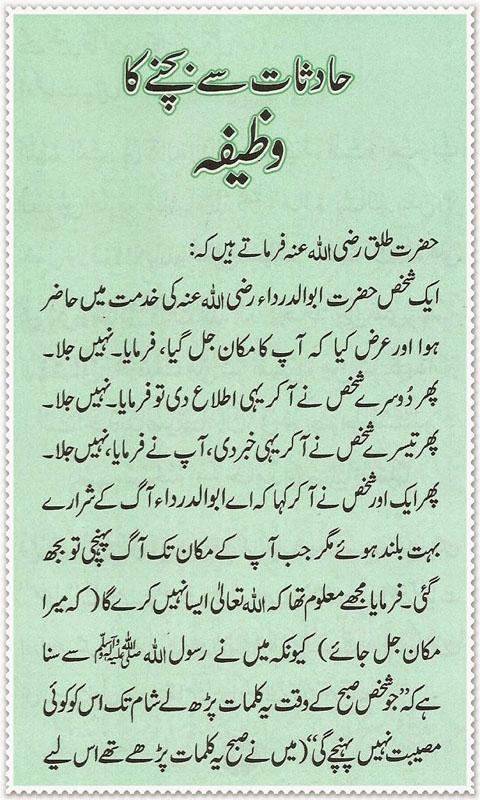 حادثات سے بچنے کا
وظیفہ
حضرت طلق رضی اللہ عنہ فرماتے ہیں کہ:
ایک شخص حضرت ابوالدرداء رضی اللہ عنہ کی خدمت میں حاضر
ہوا اور عرض کیا کہ آپ کا مکان جل گیا، فرمایا۔ نہیں جلا۔
پھر دُوسرے شخص نے آ کر یہی اطلاع دی تو فرمایا۔ نہیں جلا۔
پھر تیسرے شخص نے آ کر یہی خبر دی، آپ نے فرمایا، نہیں جلا۔
پھر ایک اور شخص نے آ کر کہا کہ اے ابوالدرداء آگ کے شرارے
بہت بلند ہوئے مگر جب آپ کے مکان تک آگ پہنچی تو بجھ
گئی۔ فرمایا مجھے معلوم تھا کہ اللہ تعالیٰ ایسا نہیں کرے گا (کہ میرا
مکان جل جائے) کیونکہ میں نے رسول اللہ ﷺ سے سنا
ہے کہ "جو شخص صبح کے وقت یہ کلمات پڑھ لے شام تک اس کو کوئی
مصیبت نہیں پہنچے گی" (میں نے صبح یہ کلمات پڑھے تھے اس لیے